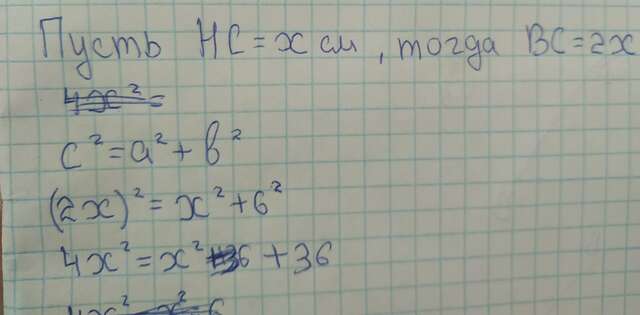 Пусть HC = x см, тогда BC = 2x
4x² =
c² = a² + b²
(2x)² = x² + 6²
4x² = x² + 36